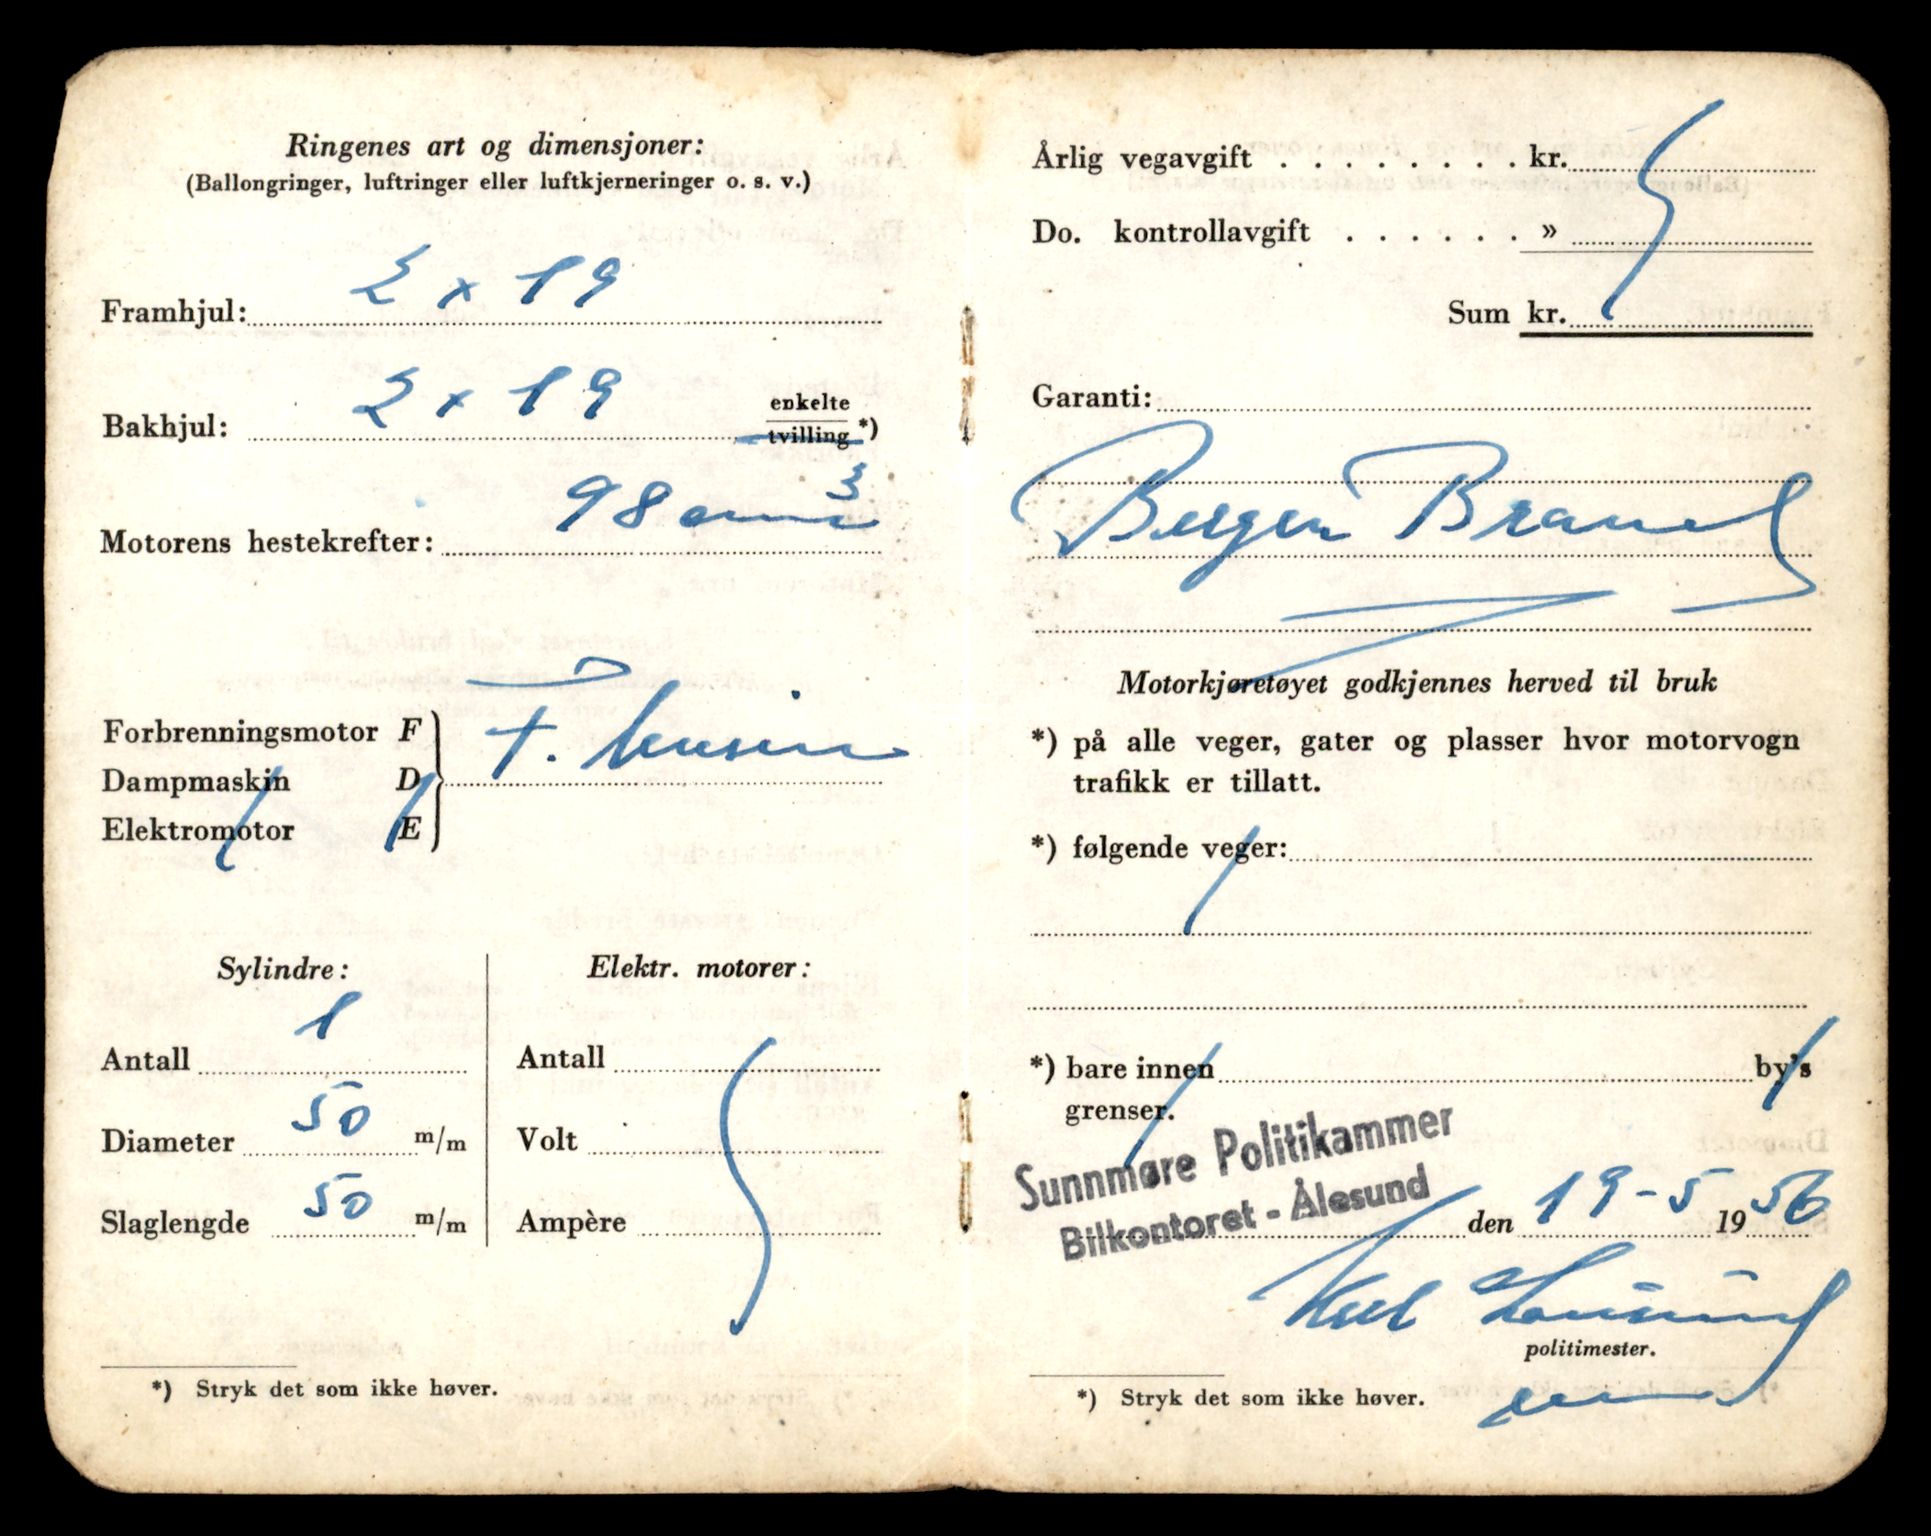 Ringenes art og dimensjoner:
(Ballongringer, luftringer eller luftkjerneringer o. s. v.)
Framhjul: 2 x 19
Bakhjul: 2 x 19 enkelte
tvilling *)
Motorens hestekrefter: 98 cm³
Forbrenningsmotor F
Dampmaskin D
Elektromotor E
F. bensin
Sylindre:
Antall 1
Diameter 50 m/m
Slaglengde 50 m/m
Elektr. motorer:
Antall
Volt
Ampère
*) Stryk det som ikke høver.
Årlig vegavgift . . . . . . . . kr.
Do. kontrollavgift . . . . . . »
Sum kr.
Garanti:
Bergen Brand
Motorkjøretøyet godkjennes herved til bruk
*) på alle veger, gater og plasser hvor motorvogn
trafikk er tillatt.
*) følgende veger:
*) bare innen by's
grenser.
Sunnmøre Politikammer
Bilkontoret - Ålesund
den 19-5 1956
politimester.
*) Stryk det som ikke høver.